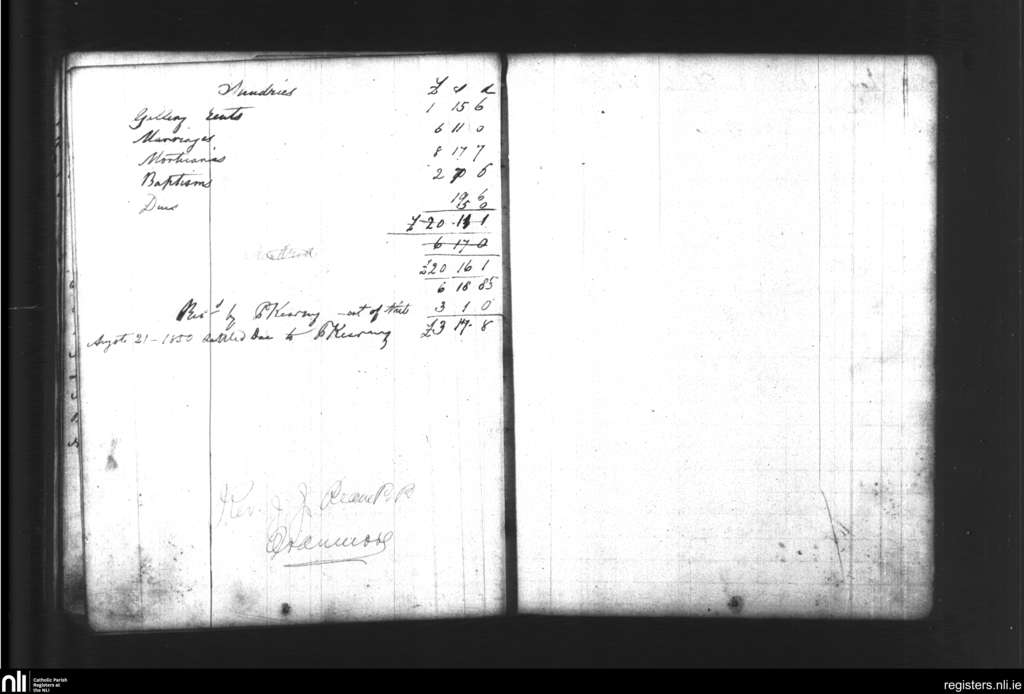 Sundries £ s d
1 15 6
Marriages 6 11 0
8 17 7
Baptisms 2
Dues 19 6
15 0
£ 20 1
6 17 0
£20 16 1
6 18 
Recd by P Kearney out of this 3 1 0
Augst 21 - 1850 settled Due to P Kearney £3 17 8
Rev. J. J. P.P.
Oranmore
nli
Catholic Parish
Registers at
the NLI
registers.nli.ie